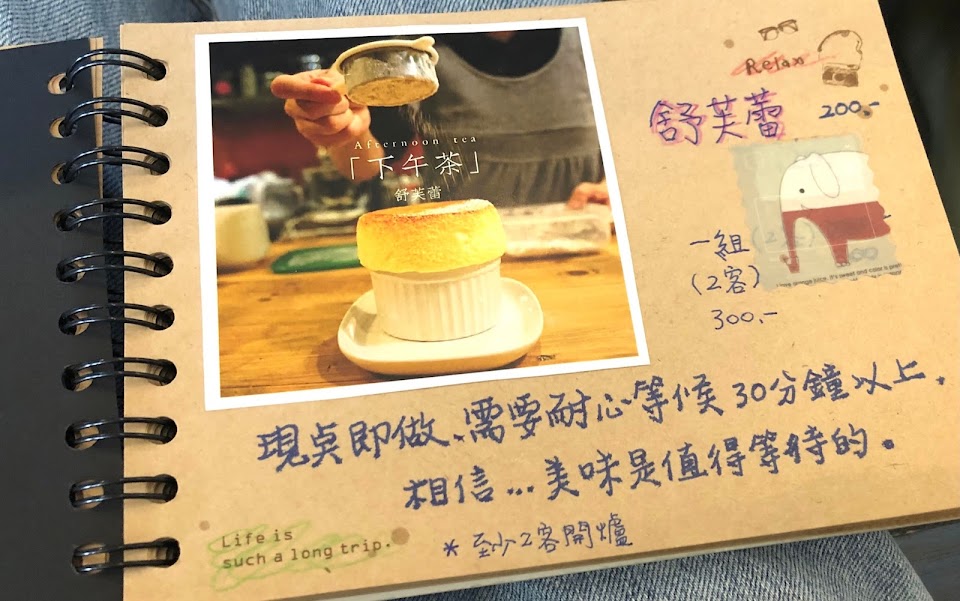 Relax
Afternoon tea
「下午茶」
舒芙蕾
舒芙蕾 200.-
一組
(2客)
300.-
現点即做、需要耐心等候30分鐘以上.
相信...美味是值得等待的。
* 至少2客開爐
Life is
such a long trip.